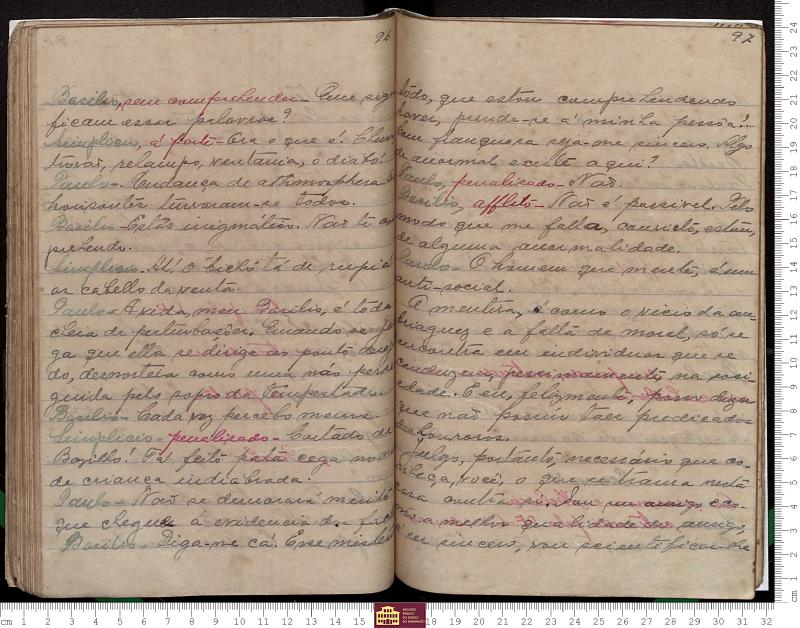 96
Basilio, sem comprehender - Que sig
ficam essas palavras?
Simplicio, á parte - Ora o que é! Chuva
trovão, relampo, ventania, o diabo!
Paulo - Mudança de athmosphera. Os
horisontes turvaram-se todos.
Basilio - Estás inigmatico. Não te com
prehendo.
Simplicio - Ah! O bicho tá de rupia
os cabello da venta.
Paulo - A vida, meu Basilio, é toda
cheia de perturbações. Quando se jul
ga que ella se dirige ao ponto deseja
do, desnorteia como uma náo perse
guida pelo sopro da tempestade.
Basilio - Cada vez percebo menos.
Simplicio - penalisado - Coitado de
Bazilho! Tá feito cega nos
de criança indiabrada.
Paulo - Não se demorará muito
que chegue á evidencia dos factos
Basilio - Diga-me cá. Esse misterio
97
todo, que estou comprehendendo
haver, prende-se á minha pessôa?
Com franqueza seja-me sincero. Algo
de anormal existe aqui?
Paulo, penalisado - Não.
Basilio, afflito - Não é possivel. Pelo
modo que me falla, convicto, estou,
de alguma anormalidade.
Paulo - O homem que mente, é um
anti-social.
A mentira, é como o vicio da em
briaguez e a falta de moral, só se
encontra em individuos que se
conduzem pessimamente na soci-
edade. E eu, felizmente, posso dizer
que não possuo taes predicados
deshonrosos.
Julgo, portanto, necessario que co-
nheça, você, o que se trama nesta
casa contra si. Sou seu amigo e co-
mo a melhor qualidade do amigo,
é ser sincero, vou scientificar-lhe
cm 1 2 3 4 5 6 7 8 9 10 11 12 13 14 15
ARQUIVO
PÚBLICO
DO ESTADO
DO MARANHÃO
18 19 20 21 22 23 24 25 26 27 28 29 30 31 32